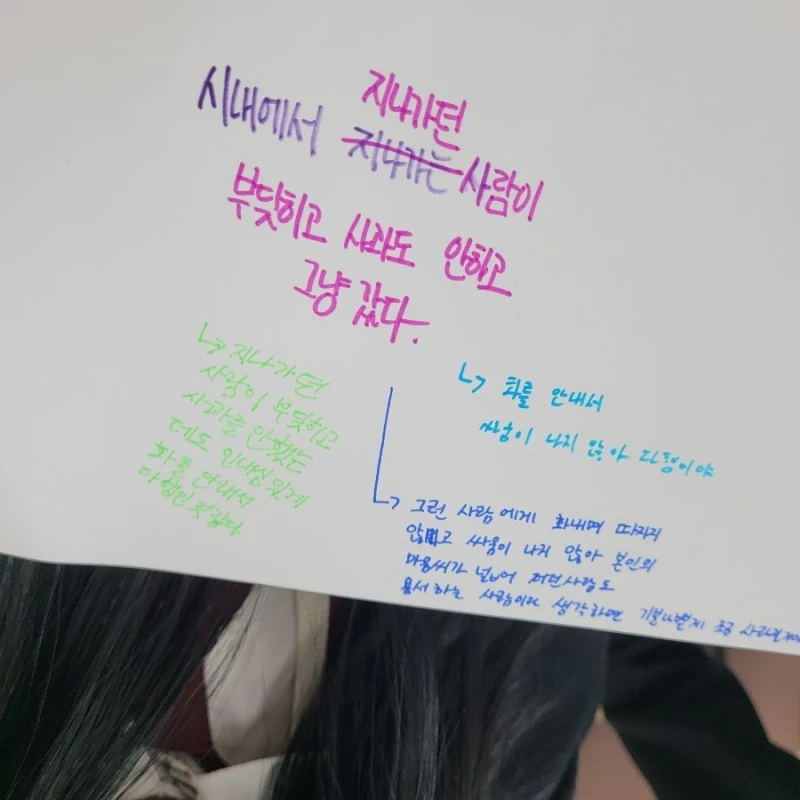 지나가던
시내에서 지나가는 사람이
부딪히고 사과도 안하고
그냥 갔다.
↳ 지나가던
사람이 부딪히고
사과를 안했는
데도 인내심있게
화를 안내서
다행인것같다.
↳ 화를 안내서
싸움이 나지 않아 다행이야
↳ 그런 사람에게 화내며 따지지
않고 싸움이 나지 않아 본인의
마음씨가 넓어 저런사람도
용서하는 사람이라 생각하면 기분나쁜게 조금